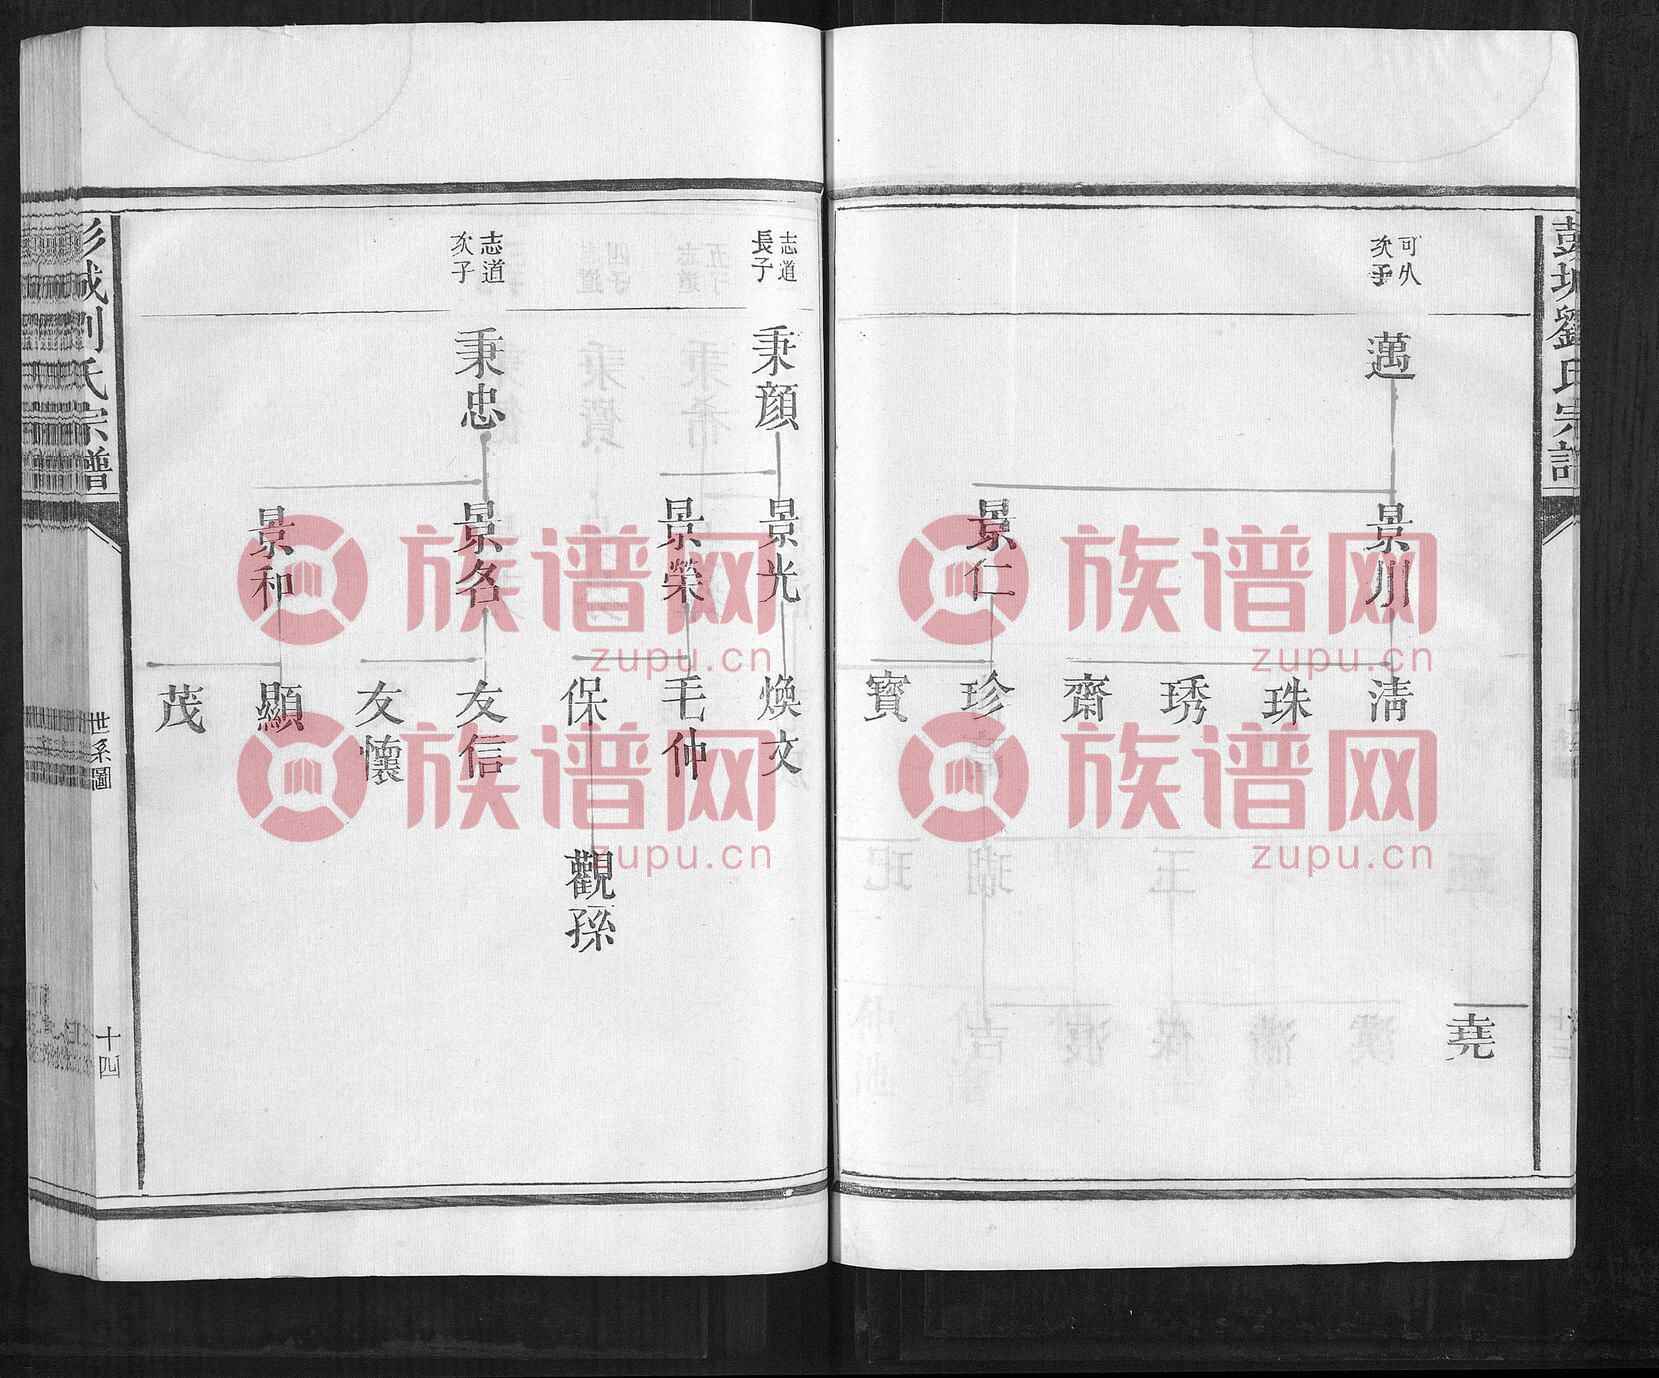 彭城劉氏宗譜
可八
次子
邁
景川
景仁
淸
珠
琇
齋
珍
寶
堯
志道
長子
秉顔
景光
景榮
煥文
毛仲
保
觀孫
志道
次子
秉忠
景名
景和
友信
友懷
顯
茂
彭城劉氏宗譜
世系圖
十四
族谱网
zupu.cn
族谱网
zupu.cn
族谱网
zupu.cn
族谱网
zupu.cn